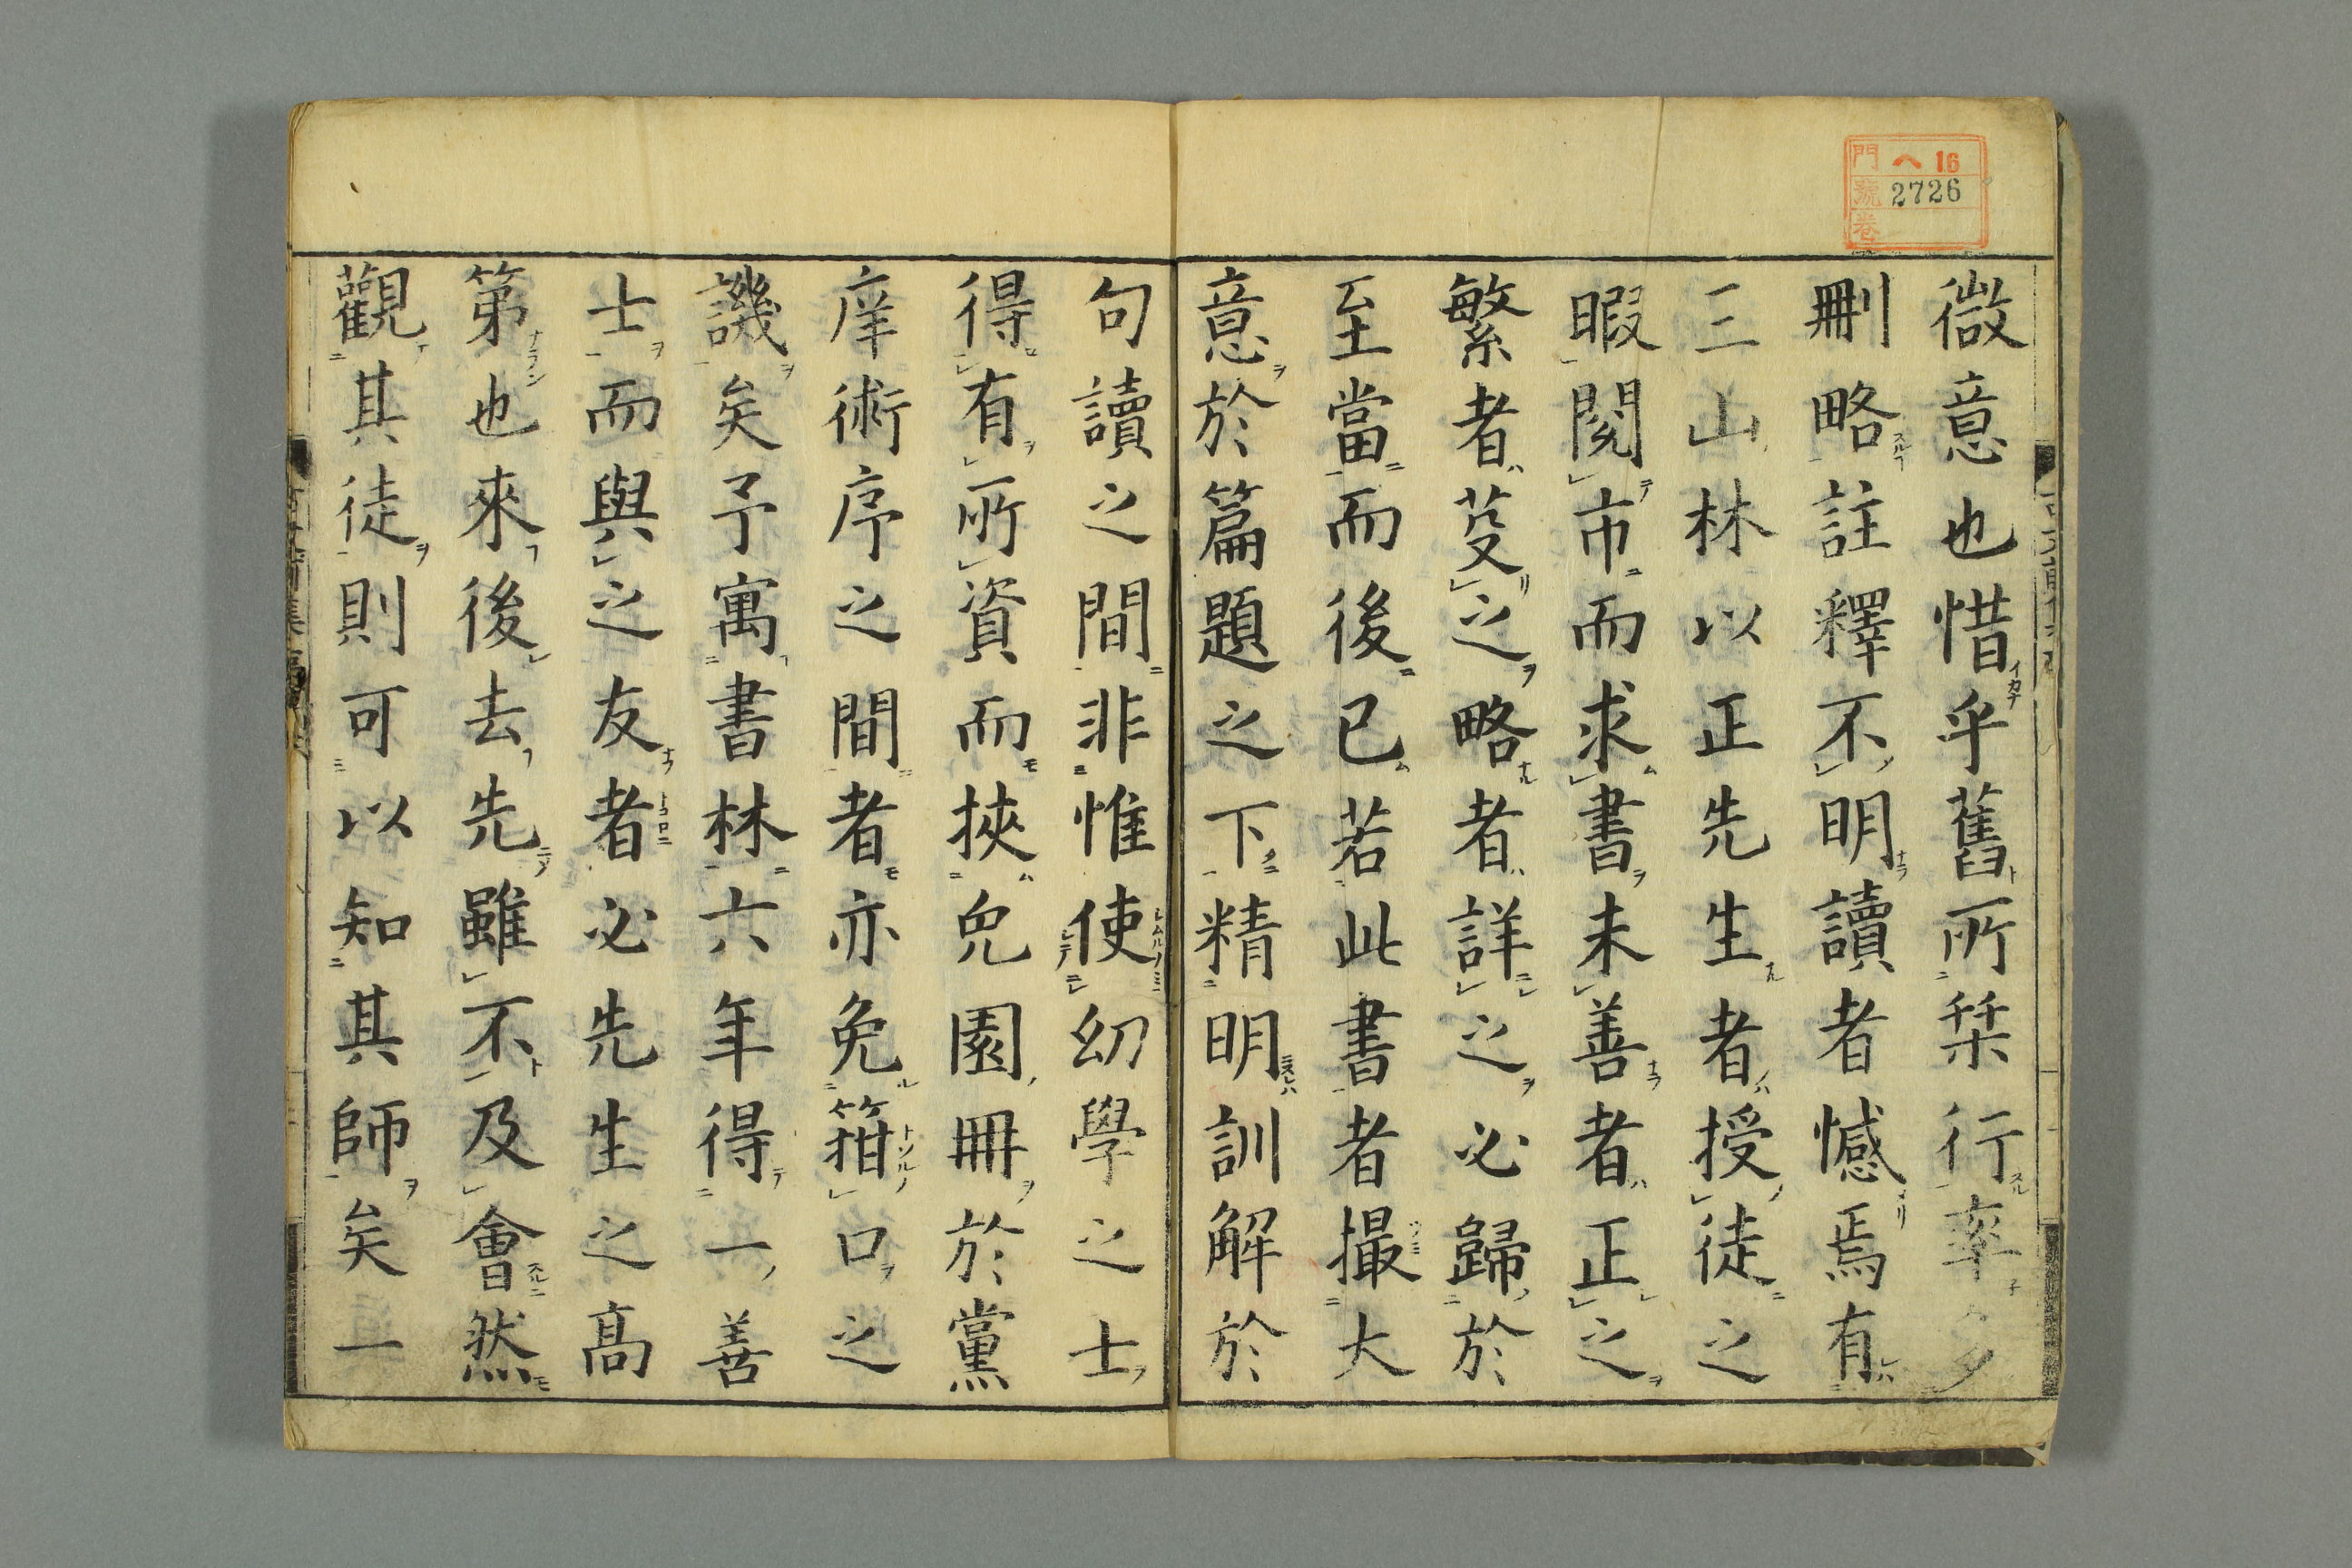 門 ヘ 16
號 2726
卷
微意也惜乎舊所栞行率多
刪略註釋不明讀者憾焉有
三山林以正先生者授徒之
暇閱市而求書未善者正之
繁者芟之略者詳之必歸於
至當而後已若此書者撮大
意於篇題之下精明訓解於
句讀之間非惟使幼學之士
得有所資而挾兔園冊於黨
庠術序之間者亦免箝口之
譏矣予寓書林六年得一善
士而與之友者必先生之高
第也來後去先雖不及會然
觀其徒則可以知其師矣一